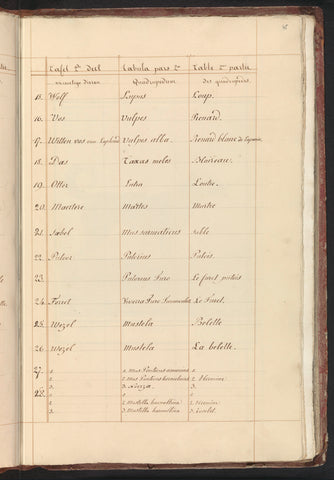 Tafel 2e deel Tabula pars 2a Table 2me partie
viervoetige dieren Quadrupedum des quadrupèdes
15. Wolf Lupus Loup.
16. Vos Vulpes Renard.
17. Witten vos van Lapland Vulpes alba. Renard blanc de Laponie
18. Das Taxus meles Blaireau.
19. Otter Lutra Loutre.
20. Maerter Martes Martre
21. Sabel Mus sarmaticus Sable
22. Putoor Putorius Putois
23. Putorius Furo Le furet putois
24. Ferret Viverra Furo Le Furet.
25. Wezel Mustela Belette
26. Wezel Mustela La belette.
27. 1. 1. Mus Ponticus 1.
2. 2. Mus Ponticus 2. Hermine
3. 3. 3.
28. 1.
2. 2. Mustella 2. Hermine
3. 3. Mustella 3.